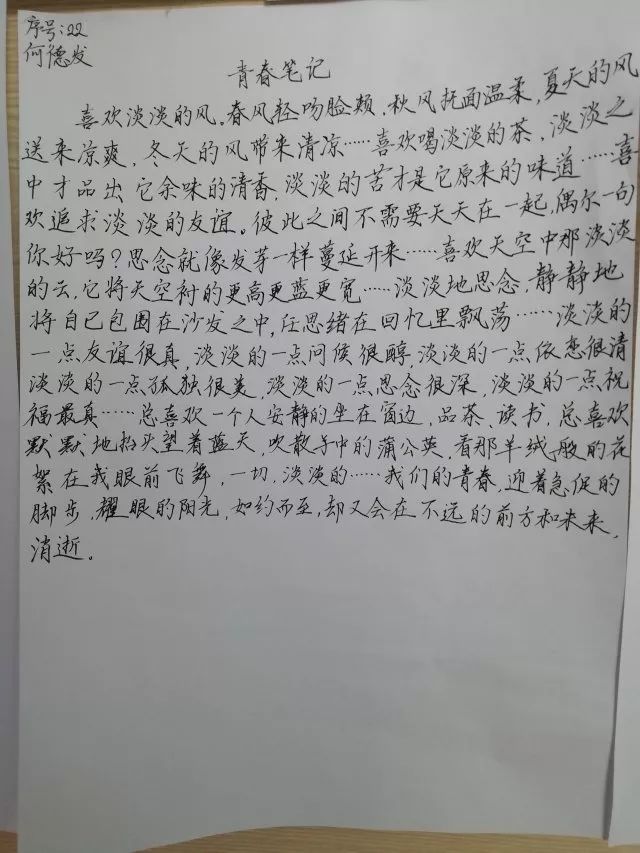 序号:22
何德发
青春笔记
喜欢淡淡的风。春风轻吻脸颊,秋风抚面温柔,夏天的风
送来凉爽,冬天的风带来清凉……喜欢喝淡淡的茶,淡淡之
中才品出它余味的清香,淡淡的苦才是它原来的味道……喜
欢追求淡淡的友谊。彼此之间不需要天天在一起,偶尔一句
你好吗?思念就像发芽一样蔓延开来……喜欢天空中那淡淡
的云,它将天空衬的更高更蓝更宽……淡淡地思念,静静地
将自己包围在沙发之中,任思绪在回忆里飘荡……淡淡的
一点友谊很真,淡淡的一点问候很醇,淡淡的一点依恋很清
淡淡的一点孤独很美,淡淡的一点思念很深,淡淡的一点祝
福最真……总喜欢一个人安静的坐在窗边,品茶、读书,总喜欢
默默地抬头望着蓝天,吹散手中的蒲公英,看那羊绒般的花
絮在我眼前飞舞,一切,淡淡的……我们的青春,迎着急促的
脚步,耀眼的阳光,如约而至,却又会在不远的前方和未来,
消逝。